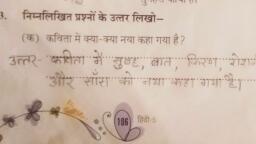 3. निम्नलिखित प्रश्नों के उत्तर लिखो—
(क) कविता में क्या-क्या नया कहा गया है?
उत्तर- कविता में सुबह, बात, किरण,
और साँस को नया कहा गया है।
106 हिंदी-5